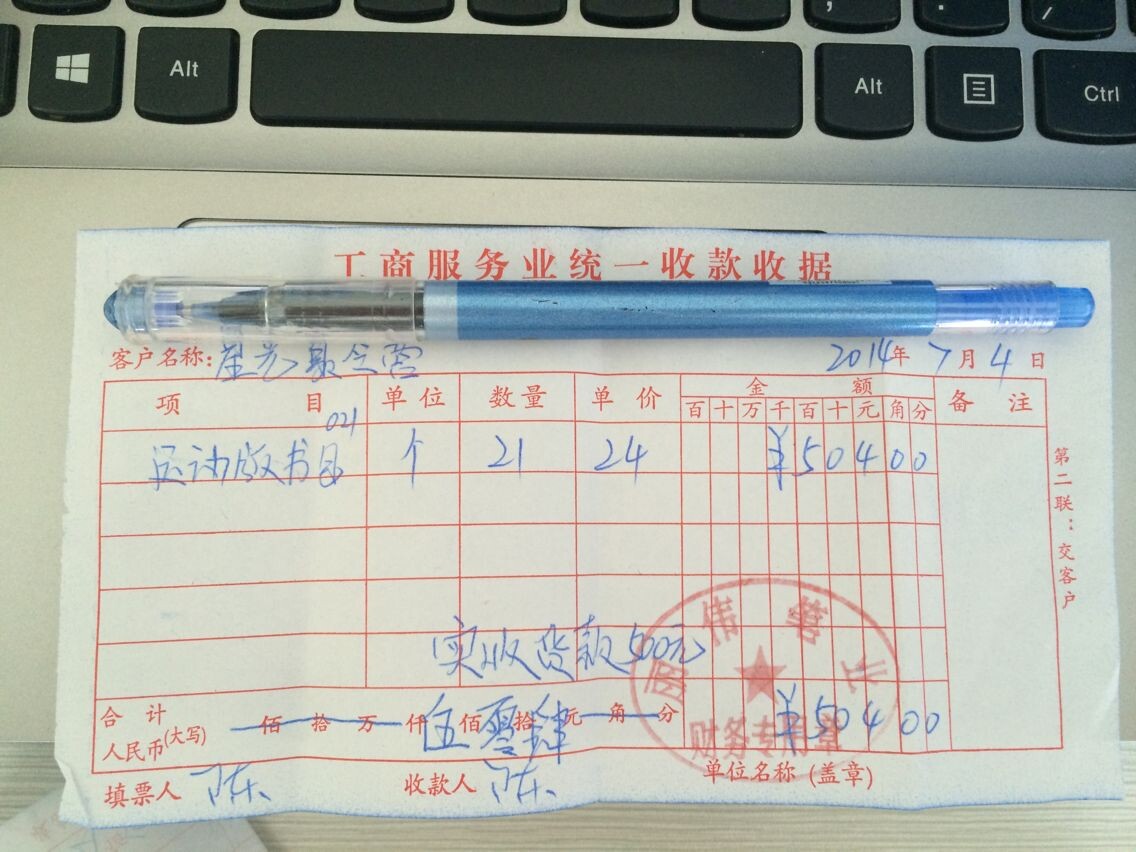 Alt
Alt
Ctrl
工商服务业统一收款收据
客户名称: 星光夏令营 2014年7月4日
项目 单位 数量 单价 金额 备注
百十万千百十元角分
021
运动版书包 个 21 24 ¥50400
第二联：交客户
实收货款500元
合计人民币(大写) 佰拾万仟伍佰零拾肆元角分 ¥50400
伟营业
财务专用章
填票人 陈 收款人 陈 单位名称(盖章)